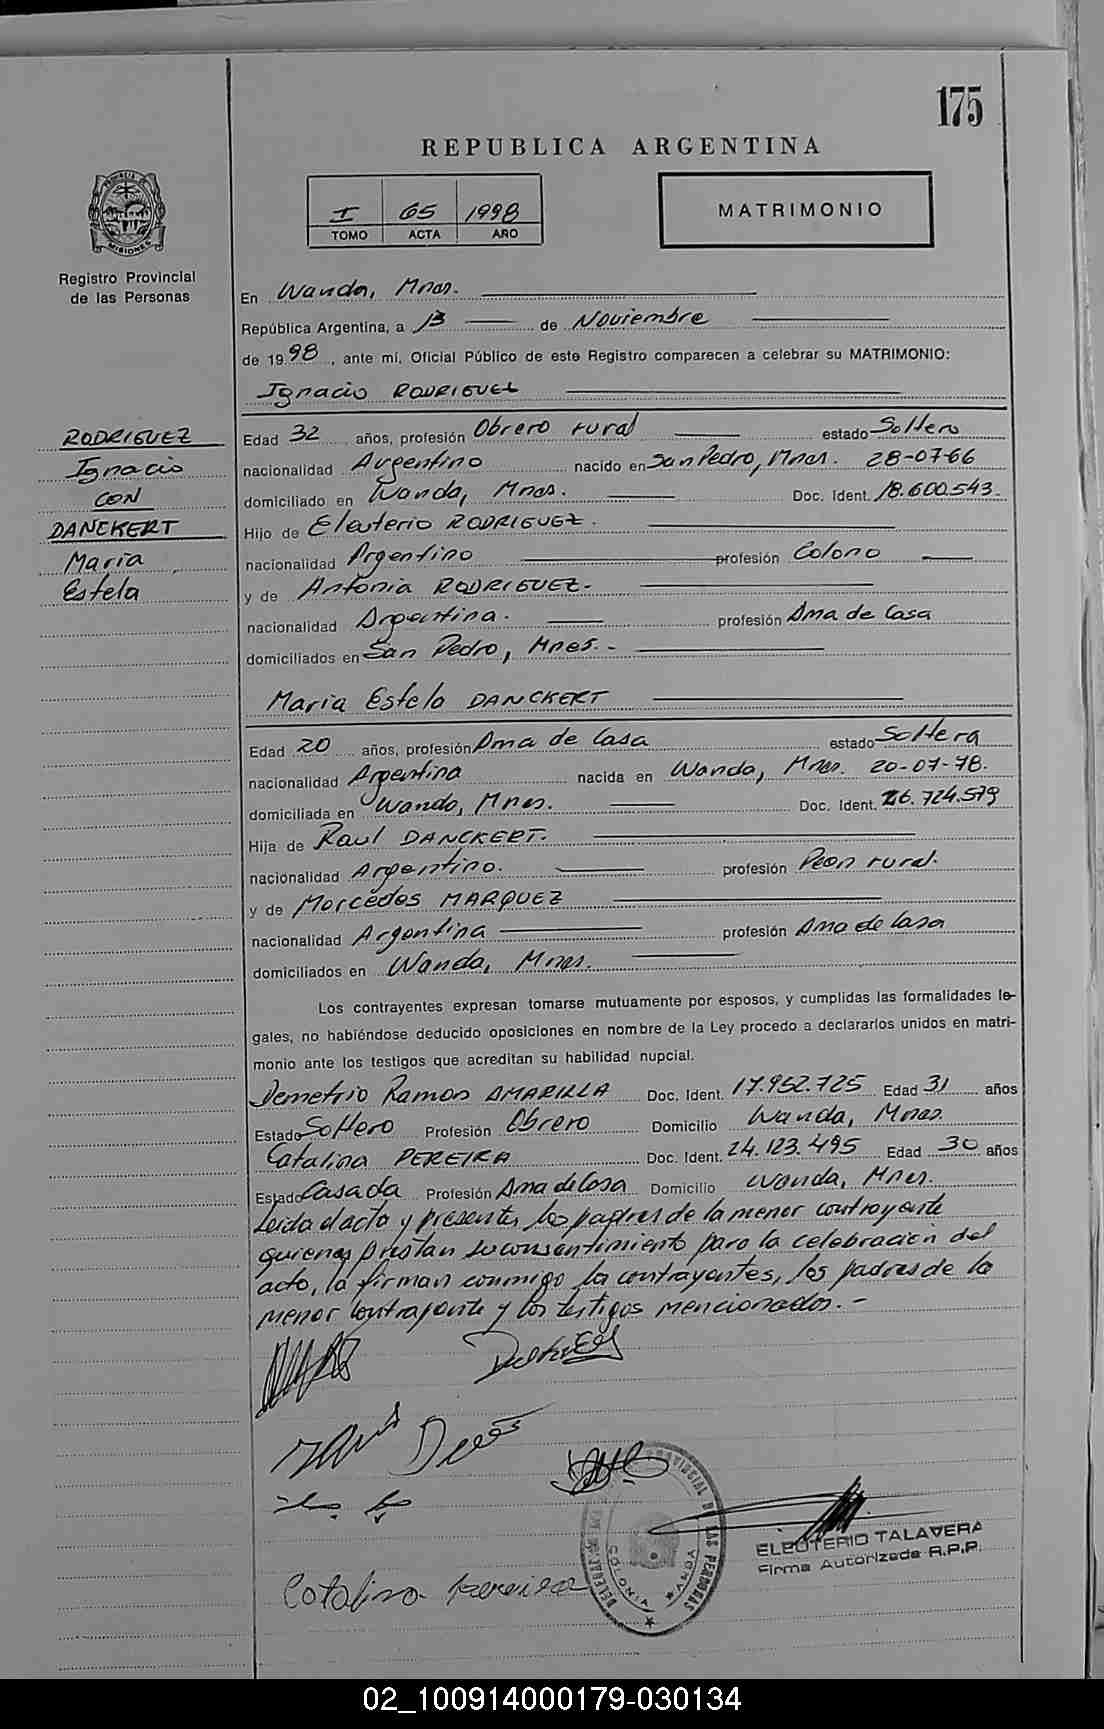 175
REPUBLICA ARGENTINA
I 65 1998
TOMO ACTA AÑO
MATRIMONIO
MISIONES
Registro Provincial
de las Personas
En Wanda, Mnes.
República Argentina, a 13 de Noviembre
de 1998, ante mí, Oficial Público de este Registro comparecen a celebrar su MATRIMONIO:
Ignacio RODRIGUEZ
RODRIGUEZ
Ignacio
CON
DANCKERT
María
Estela
Edad 32 años, profesión Obrero rural estado Soltero
nacionalidad Argentino nacido en San Pedro, Mnes. 28-07-66
domiciliado en Wanda, Mnes. Doc. Ident. 18.600.543.
Hijo de Eleuterio RODRIGUEZ.
nacionalidad Argentino profesión Colono
y de Antonia RODRIGUEZ.-
nacionalidad Argentina. profesión Ama de Casa
domiciliados en San Pedro, Mnes.-
María Estela DANCKERT
Edad 20 años, profesión Ama de Casa estado Soltera
nacionalidad Argentina nacida en Wanda, Mnes. 20-07-78.
domiciliada en Wanda, Mnes. Doc. Ident. 26.724.579
Hija de Raul DANCKERT.
nacionalidad Argentino. profesión Peon rural.
y de Mercedes MARQUEZ
nacionalidad Argentina profesión Ama de Casa
domiciliados en Wanda, Mnes.
Los contrayentes expresan tomarse mutuamente por esposos, y cumplidas las formalidades le-
gales, no habiéndose deducido oposiciones en nombre de la Ley procedo a declararlos unidos en matri-
monio ante los testigos que acreditan su habilidad nupcial.
Demetrio Ramon AMARILLA Doc. Ident. 17.952.725 Edad 31 años
Estado Soltero Profesión Obrero Domicilio Wanda, Mnes.
Catalina PEREIRA Doc. Ident. 24.123.495 Edad 30 años
Estado Casada Profesión Ama de Casa Domicilio Wanda, Mnes.
Leida el acta y presentes los padres de la menor contrayente
quienes prestan su consentimiento para la celebracion del
acto, la firman conmigo los contrayentes, los padres de la
menor contrayente y los testigos mencionados.-
Catalina Pereira
DELEGACION PROVINCIAL DE LAS PERSONAS
COLONIA WANDA
ELEUTERIO TALAVERA
Firma Autorizada R.P.P.
02_100914000179-030134